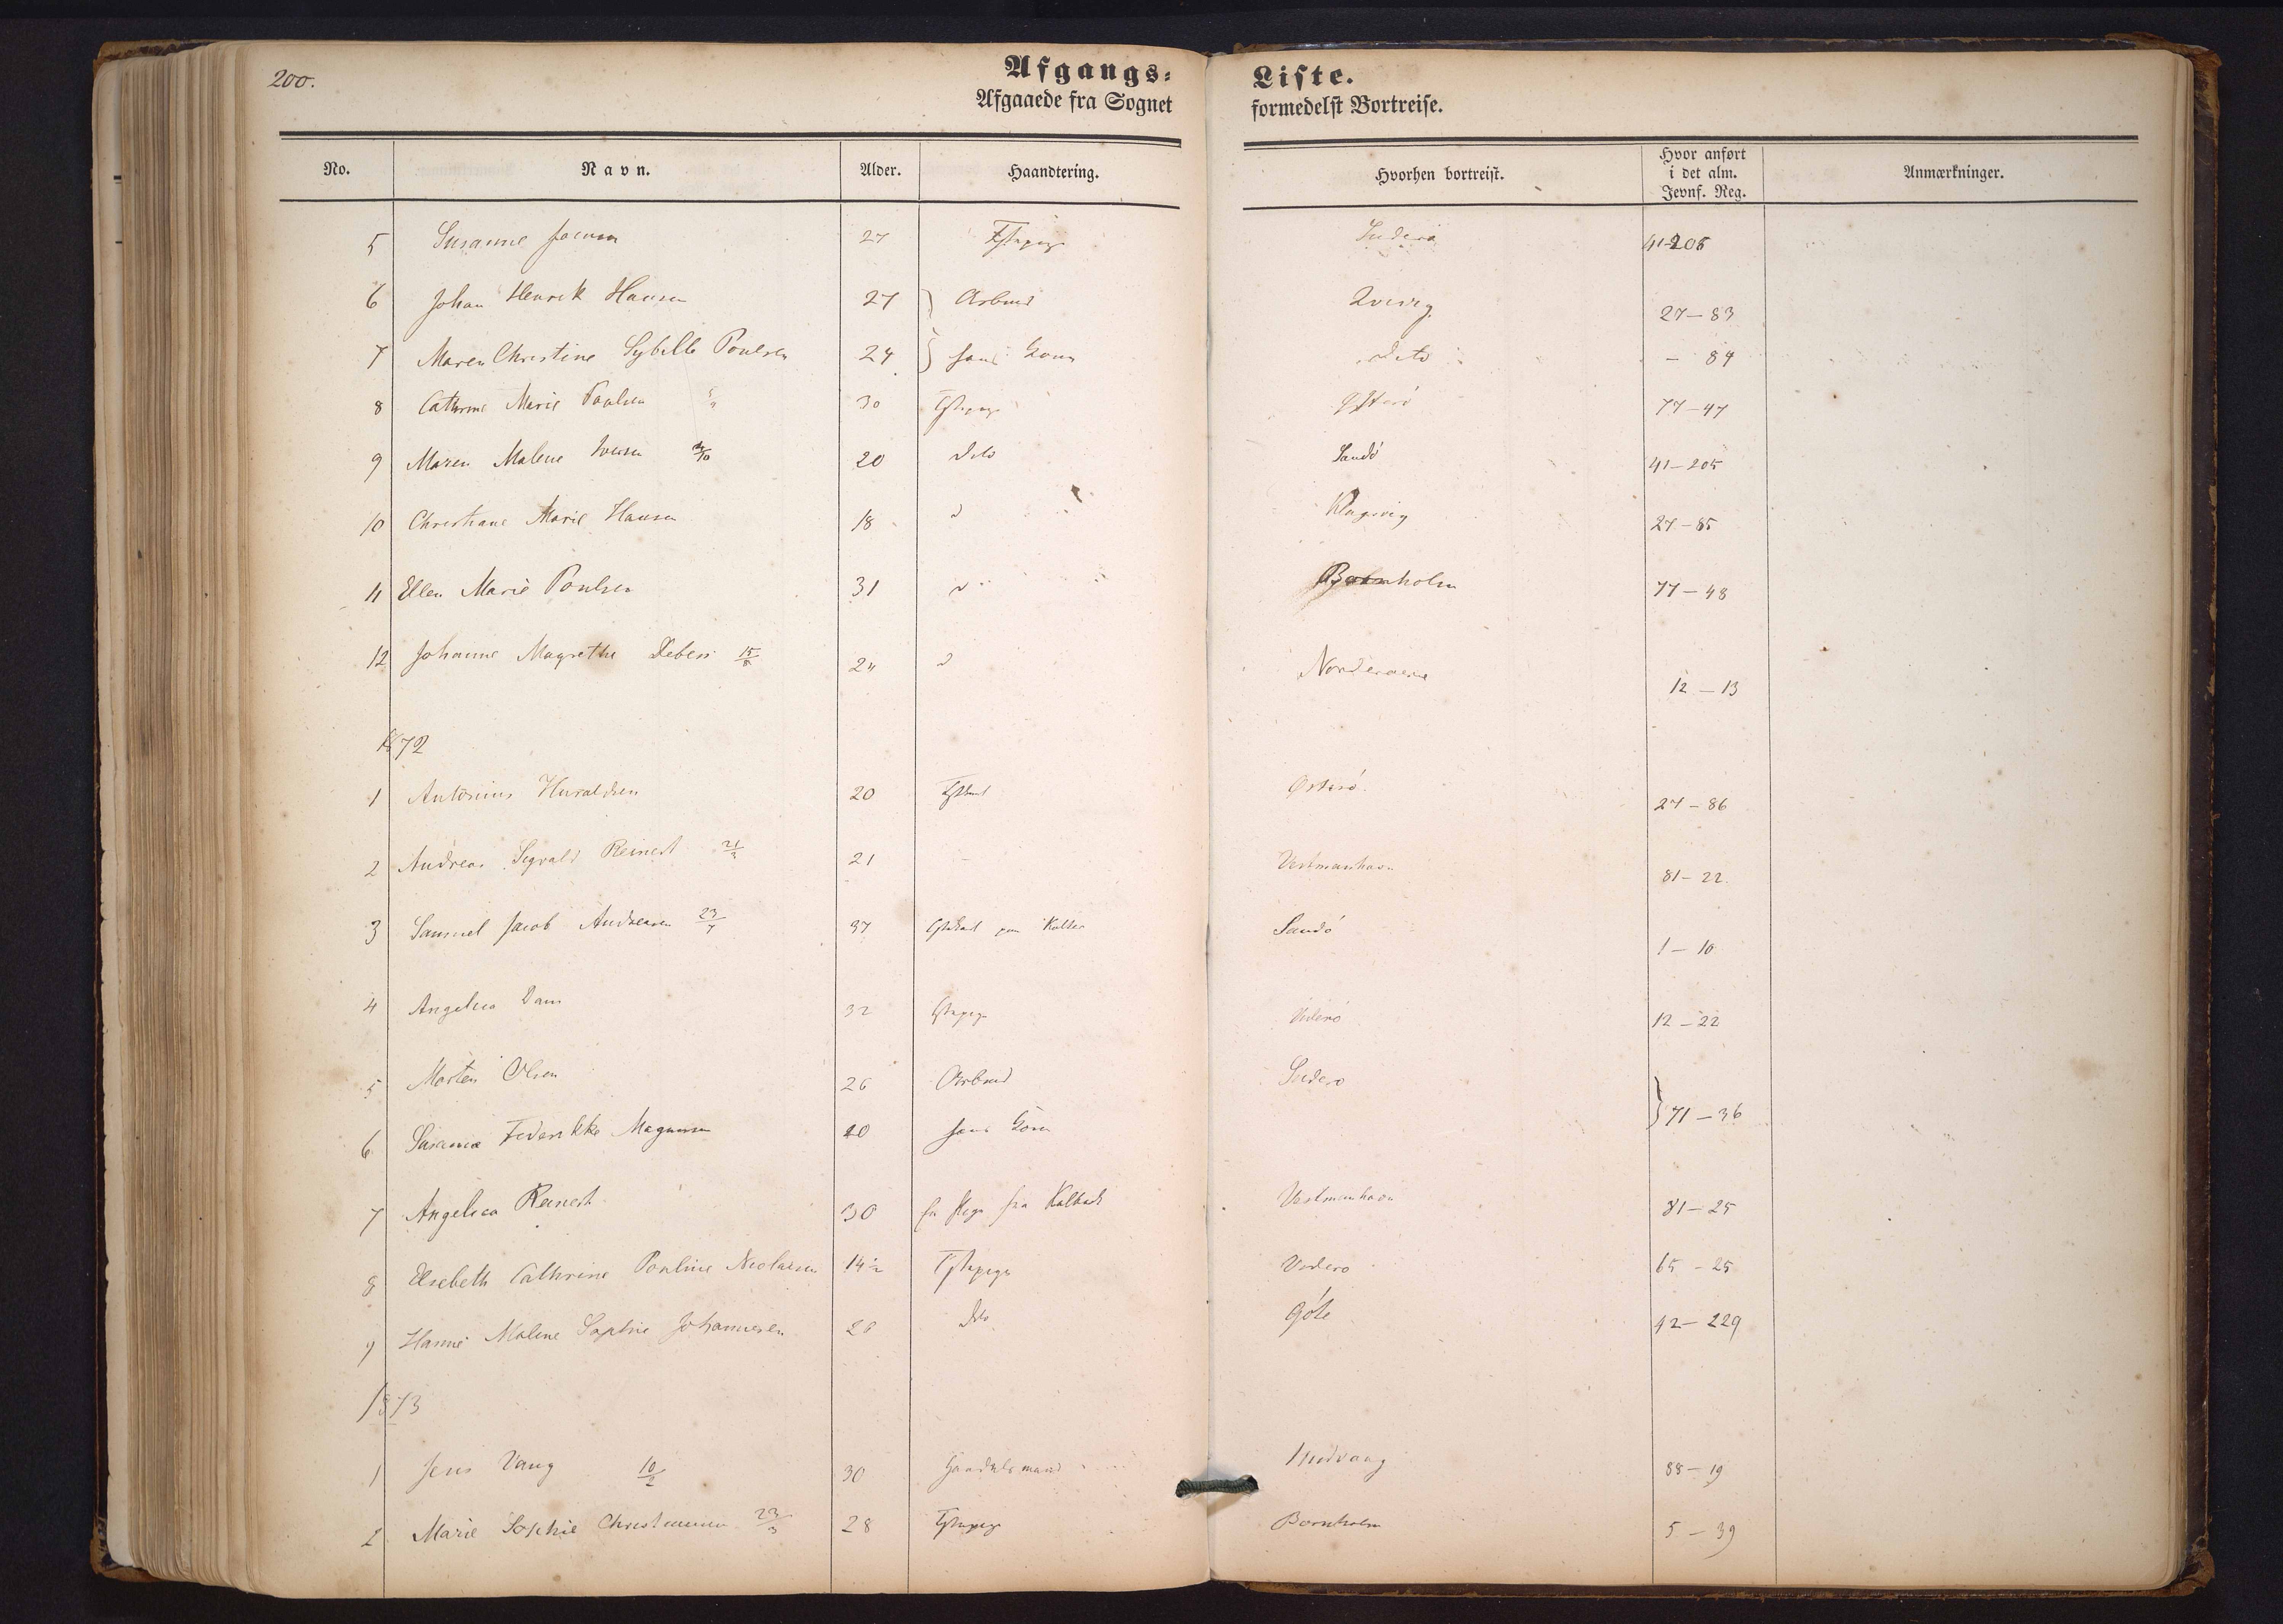 200.
Afgangs=
Liste.
Afgaaede fra Sognet
formedelst Bortreise.
No. Navn. Alder. Haandtering. Hvorhen bortreist. Hvor anført i det alm. Jevnf. Reg. Anmærkninger.
5 Susanne 27 Suderø 41-205
6 Johan Henrik Hansen 27 Arbmd Qvivig 27-83
7 Maren Christine Sybille Poulsen 24 hans Kone dito - 84
8 Cathrine Marie Poulsen 30 Østerö 77-47
9 Maren Malene 20 dito Sandö 41-205
10 Christiane Marie Hansen 18 d Klagsvig 27-85
11 Ellen Marie Poulsen 31 d Bornholm 77-48
12 Johanne Magrethe Debess 15/8 24 d Norderøerne 12-13
1872
1 Antonius Haraldsen 20 Østerö 27-86
2 Andreas Sigvald Reinert 21 Vestmanhavn 81-22
3 Samuel Jacob Andreasen 23/7 37 Sandö 1-10
4 Angelica Dam 32 Viderö 12-22
5 Morten Olsen 26 Arbmd Suderø
6 Susanna Frederikke Magnussen 20 hans Kone 71-36
7 Angelica Reinert 30 en Pige fra Kalbak Vestmanhavn 81-25
8 Elsebeth Cathrine Pouline Nicolaisen 14½ Tjstepige Viderø 65-25
9 Hanne Malene Sophie Johannesen 26 dito Göte 42-229
1873
1 Jens Vang 10/2 30 Handelsmand Midvaag 88-19
2 Marie Sophie 23/3 28 Tjstepige Bornholm 5-39